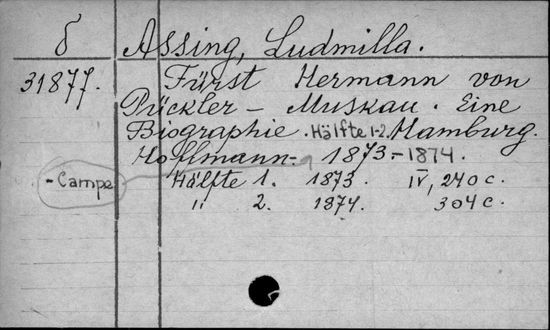 б Assing, Ludmilla.
31877. Fürst Hermann von
Pückler - Muskau. Eine
Biographie. Hälfte 1-2. Hamburg.
Hoffmann- 1873.-1874.
-Campe Hälfte 1. 1873. IV, 240 c.
" 2. 1874. 304 c.